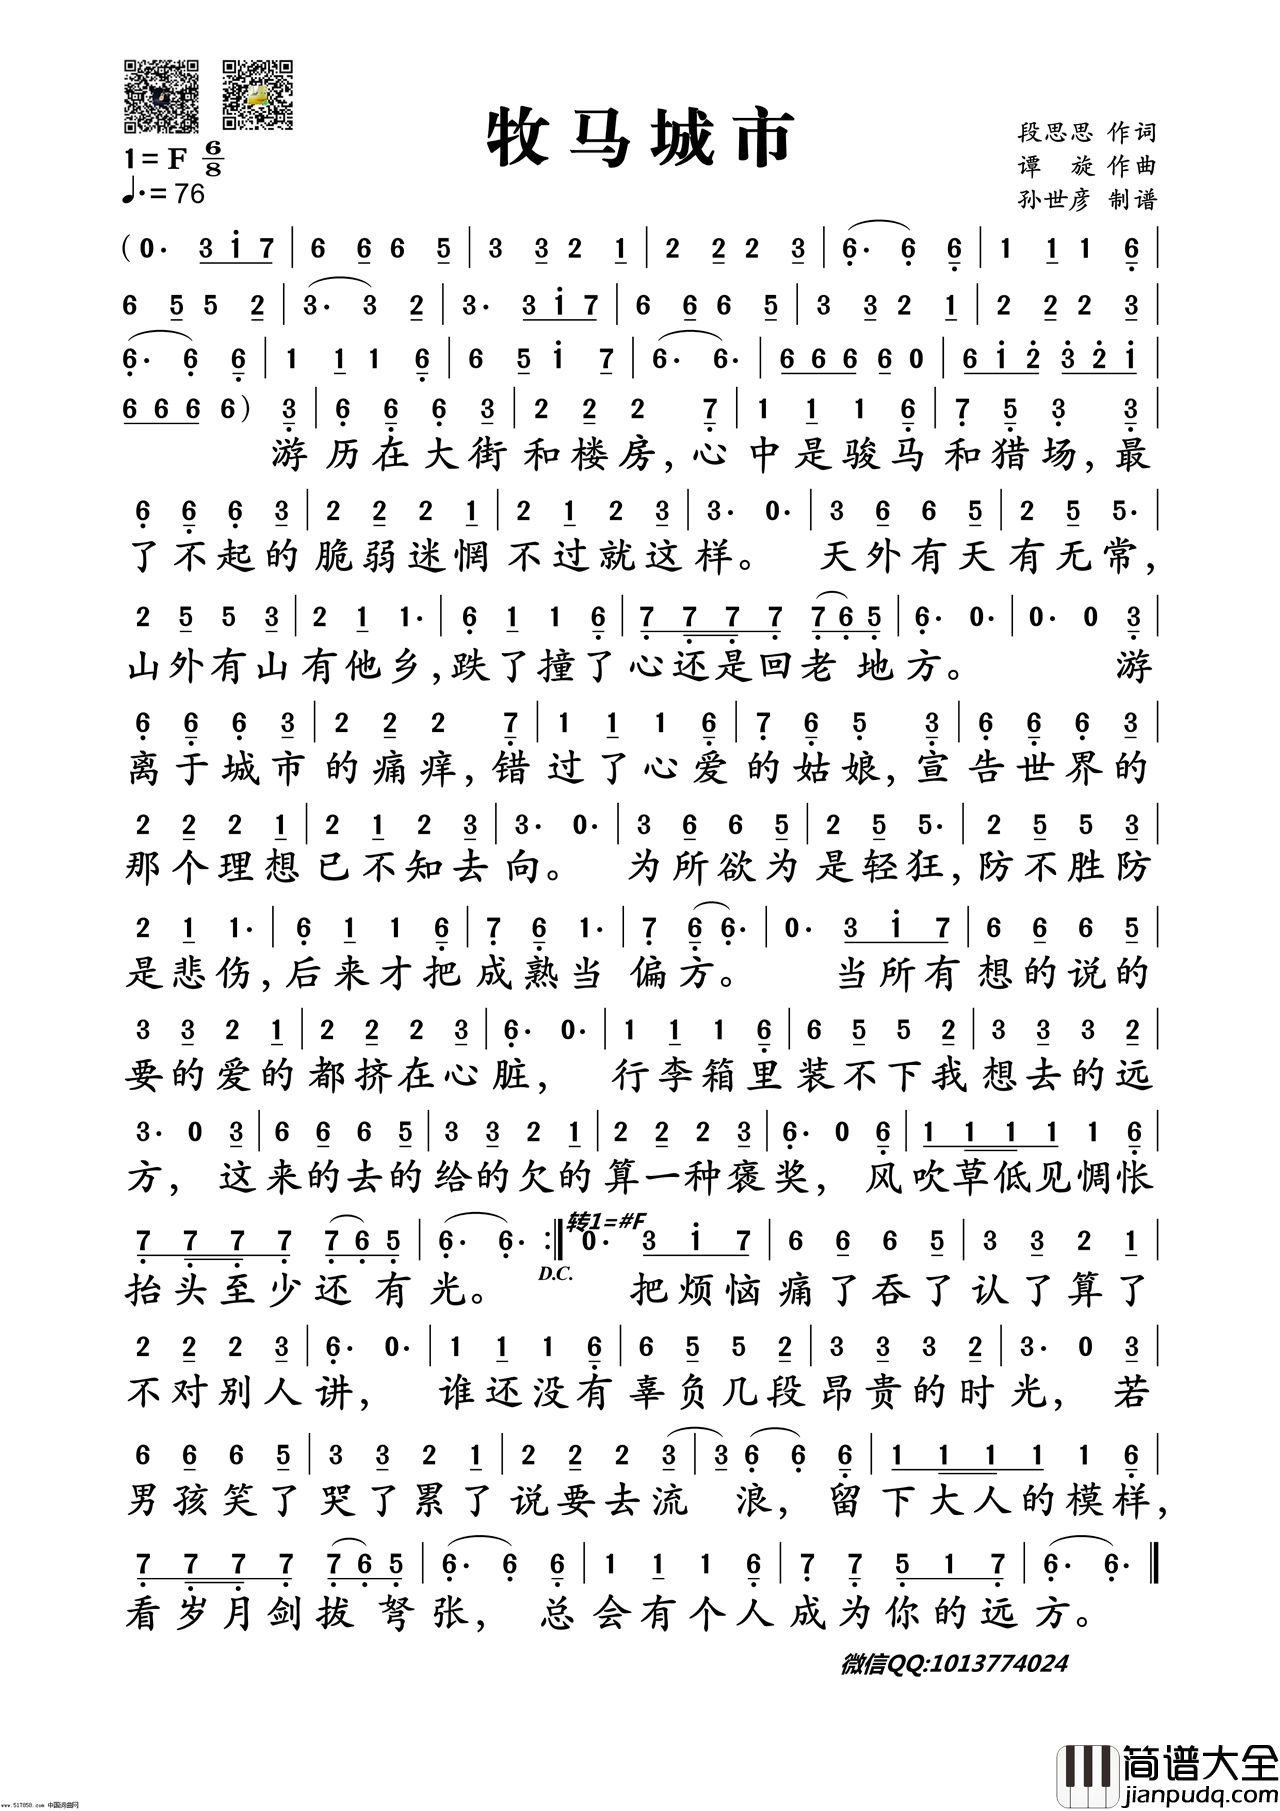 牧马城市
1=F 6/8
♩.=76
段思思 作词
谭 旋 作曲
孙世彦 制谱
(0· 3 i 7 | 6 6 6 5 | 3 3 2 1 | 2 2 2 3 | 6· 6 6 | 1 1 1 6 |
6 5 5 2 | 3· 3 2 | 3· 3 i 7 | 6 6 6 5 | 3 3 2 1 | 2 2 2 3 |
6· 6 6 | 1 1 1 6 | 6 5 i 7 | 6· 6· | 6 6 6 6 6 0 | 6 i 2 3 2 i |
6 6 6 6) 3 | 6 6 6 3 | 2 2 2 7 | 1 1 1 6 | 7 5 3 3 |
游历在大街和楼房,心中是骏马和猎场,最
6 6 6 3 | 2 2 2 1 | 2 1 2 3 | 3· 0· | 3 6 6 5 | 2 5 5· |
了不起的脆弱迷惘不过就这样。 天外有天有无常,
2 5 5 3 | 2 1 1· | 6 1 1 6 | 7 7 7 7 7 6 5 | 6· 0· | 0· 0 3 |
山外有山有他乡,跌了撞了心还是回老地方。 游
6 6 6 3 | 2 2 2 7 | 1 1 1 6 | 7 6 5 3 | 6 6 6 3 |
离于城市的痛痒,错过了心爱的姑娘,宣告世界的
2 2 2 1 | 2 1 2 3 | 3· 0· | 3 6 6 5 | 2 5 5· | 2 5 5 3 |
那个理想已不知去向。 为所欲为是轻狂,防不胜防
2 1 1· | 6 1 1 6 | 7 6 1· | 7 6 6· | 0· 3 i 7 | 6 6 6 5 |
是悲伤,后来才把成熟当偏方。 当所有想的说的
3 3 2 1 | 2 2 2 3 | 6· 0· | 1 1 1 6 | 6 5 5 2 | 3 3 3 2 |
要的爱的都挤在心脏, 行李箱里装不下我想去的远
3· 0 3 | 6 6 6 5 | 3 3 2 1 | 2 2 2 3 | 6· 0 6 | 1 1 1 1 1 6 |
方,这来的去的给的欠的算一种褒奖,风吹草低见惆怅
转1=#F
7 7 7 7 7 6 5 | 6· 6· :‖ 0· 3 i 7 | 6 6 6 5 | 3 3 2 1 |
D.C.
抬头至少还有光。 把烦恼痛了吞了认了算了
2 2 2 3 | 6· 0· | 1 1 1 6 | 6 5 5 2 | 3 3 3 2 | 3· 0 3 |
不对别人讲, 谁还没有辜负几段昂贵的时光,若
6 6 6 5 | 3 3 2 1 | 2 2 2 3 | 3 6 6 6 | 1 1 1 1 1 6 |
男孩笑了哭了累了说要去流浪,留下大人的模样,
7 7 7 7 7 6 5 | 6· 6 6 | 1 1 1 6 | 7 7 5 1 7 | 6· 6· ‖
看岁月剑拔弩张, 总会有个人成为你的远方。
微信QQ:1013774024
简谱大全
jianpudq.com
www.517858.com 中国词曲网